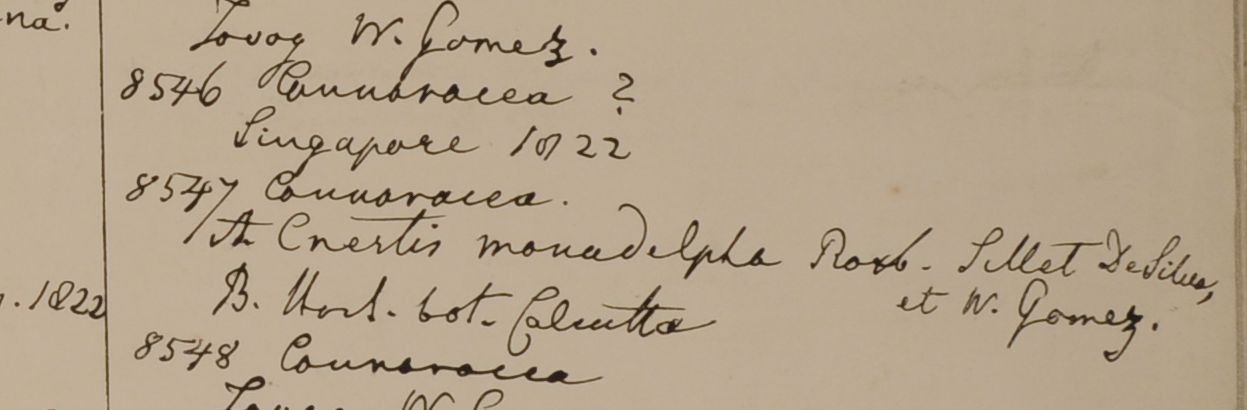 na.
Tavoy W. Gomez.
8546 Connaracea ?
Singapore 1822
8547 Connaracea.
A Cnestis monadelpha Roxb. Sillet DeSilva,
et W. Gomez.
. 1822
B. Hort. bot. Calcutta
8548 Connaracea